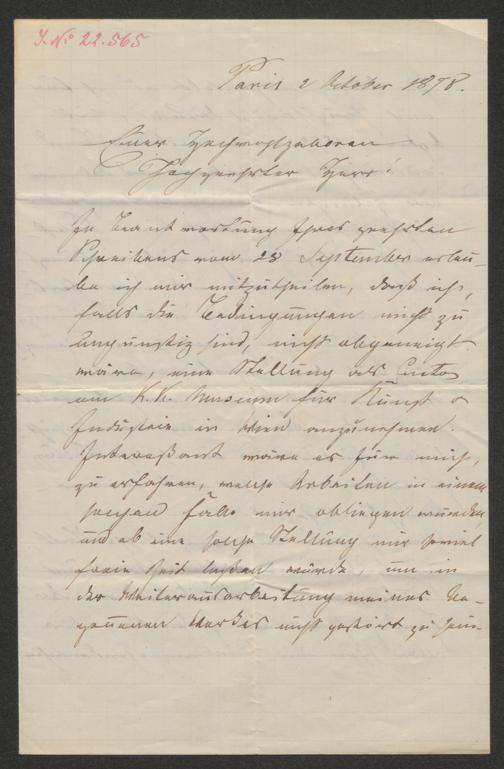 J. No 22.565
Paris 2 October 1878.
Euer Hochwohlgeboren
Hochgeehrter Herr!
In Beantwortung Ihres geehrten
Schreibens vom 28 September erlau-
be ich mir mitzutheilen, daß ich,
falls die Bedingungen nicht zu
ungünstig sind, nicht abgeneigt
wäre, eine Stellung als Custos
am K.K. Museum für Kunst &
Industrie in Wien anzunehmen.
Interessant wäre es für mich,
zu erfahren, welche Arbeiten in einem
solchen Falle mir obliegen würden
und ob eine solche Stellung mir soviel
freie Zeit lassen würde, um in
der Weiterausarbeitung meines be-
gonnenen Werkes nicht gestört zu sein.